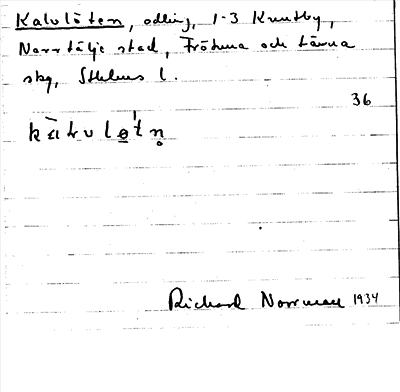 Kalvlöten, odling, 1-3 Knutby,
Norrtälje stad, Frötuna och Länna
skg, Sthlms l.
36
Richard Norrman 1934